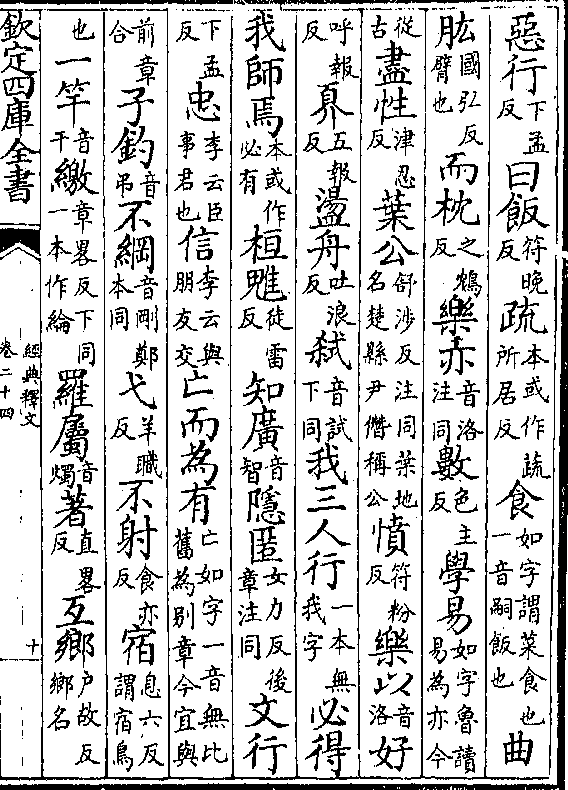 惡行下孟反曰飯符晚反疏本或作蔬所居反食如字謂菜食也一音嗣飯也曲
肱國弘反臂也而枕之鴆反樂亦音洛注同數色主反學易如字魯讀易為亦今
從古盡性津忍反葉公舒涉反注同葉地名楚縣尹僭稱公憤符粉反樂以音洛好
呼報反奡五報反盪舟吐浪反弑音試下同我三人行一本無我字必得
我師焉本或作必有桓魋徒雷反知廣音智隱匿女力反後章注同文行
下孟反忠李云臣事君也信李云與朋友交亡而為有亡如字一音無此舊為別章今宜與
前章合子釣音弔不綱音剛鄭本同弋羊職反不射食亦反宿息六反謂宿鳥
也一竿音干繳章畧反下同一本作綸羅屬音燭著直畧反互鄉户故反鄉名
欽定四庫全書
經典釋文
卷二十四
十